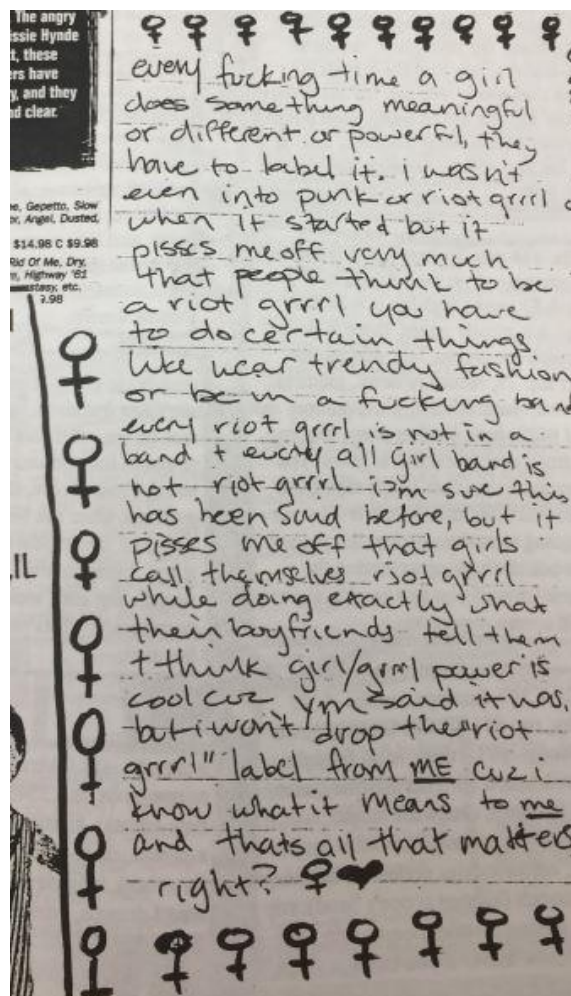 The angry
ssie Hynde
t, these
rs have
y, and they
d clear.
e, Gepetto, Slow
or, Angel, Dusted,
$14.98 C $9.98
Rid Of Me, Dry,
e, Highway '61
stasy, etc.
9.98
IL
every fucking time a girl
does something meaningful
or different or powerful, they
have to label it. i wasn't
even into punk or riot grrrl
when it started but it
pisses me off very much
that people think to be
a riot grrrl you have
to do certain things
like wear trendy fashion
or be in a fucking band
every riot grrrl is not in a
band + every all girl band is
not riot grrrl. i'm sure this
has been said before, but it
pisses me off that girls
call themselves riot grrrl
while doing exactly what
their boyfriends tell them
+ think girl/grrrl power is
cool cuz YM said it was,
but i won't drop the "riot
grrrl" label from ME cuz i
know what it means to me
and thats all that matters
right? ♀ ❤